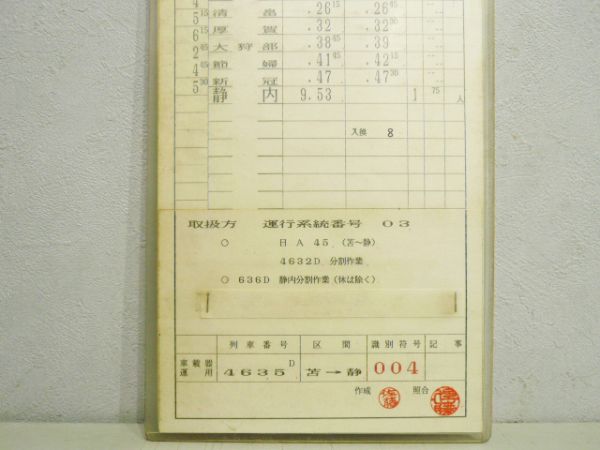 4
5 15 清畠 .26 15 .26 45
6 15 厚賀 .32 .32 30
2 45 大狩部 .38 45 .39
4 45 節婦 .41 45 .42 15
5 30 新冠 .47 .47 30
静内 9.53 1 75 人
入換 8
取扱方 運行系統番号 03
○ 日A45 (苫~静)
4632D 分割作業
○ 636D 静内分割作業(休は除く)
列車番号 区間 識別符号 記事
車載器運用 4635D 苫→静 004
作成 照合